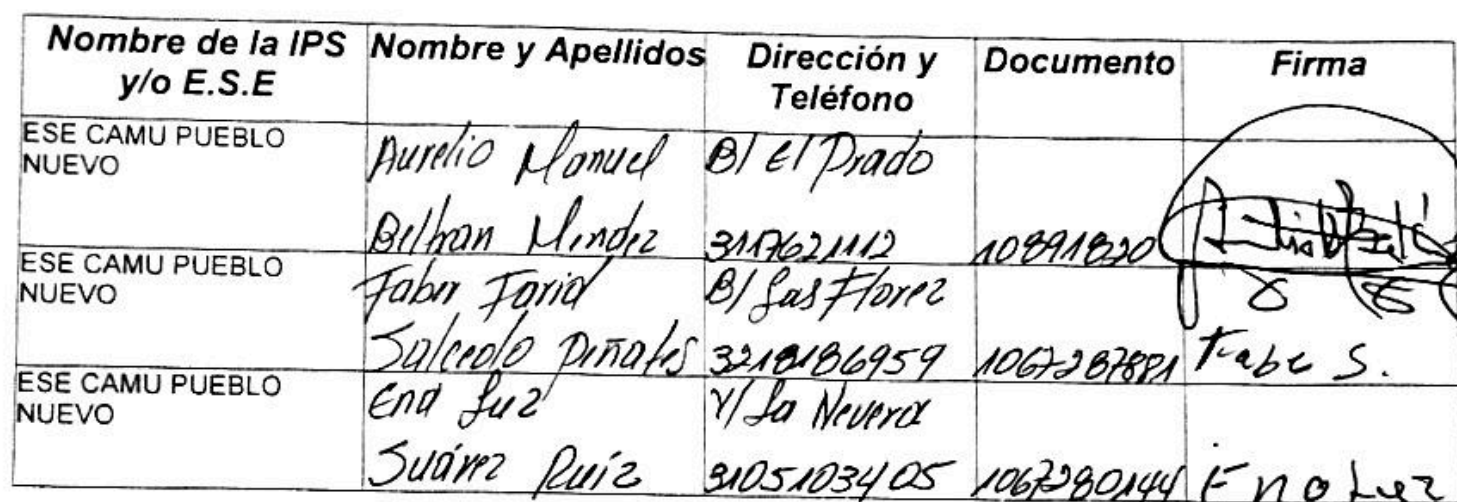 Nombre de la IPS y/o E.S.E Nombre y Apellidos Dirección y Teléfono Documento Firma
ESE CAMU PUEBLO NUEVO
Aurelio Manuel B/ El Prado
Beltran Mendez 3117621112 10891820
ESE CAMU PUEBLO NUEVO
Faber Farid B/ Las Florez
Salcedo Peñates 3218186959 1067287881 Fabe S.
ESE CAMU PUEBLO NUEVO
Ena Luz V/ La Nevera
Suárez Ruíz 3105103405 1067280144 Ena Luz